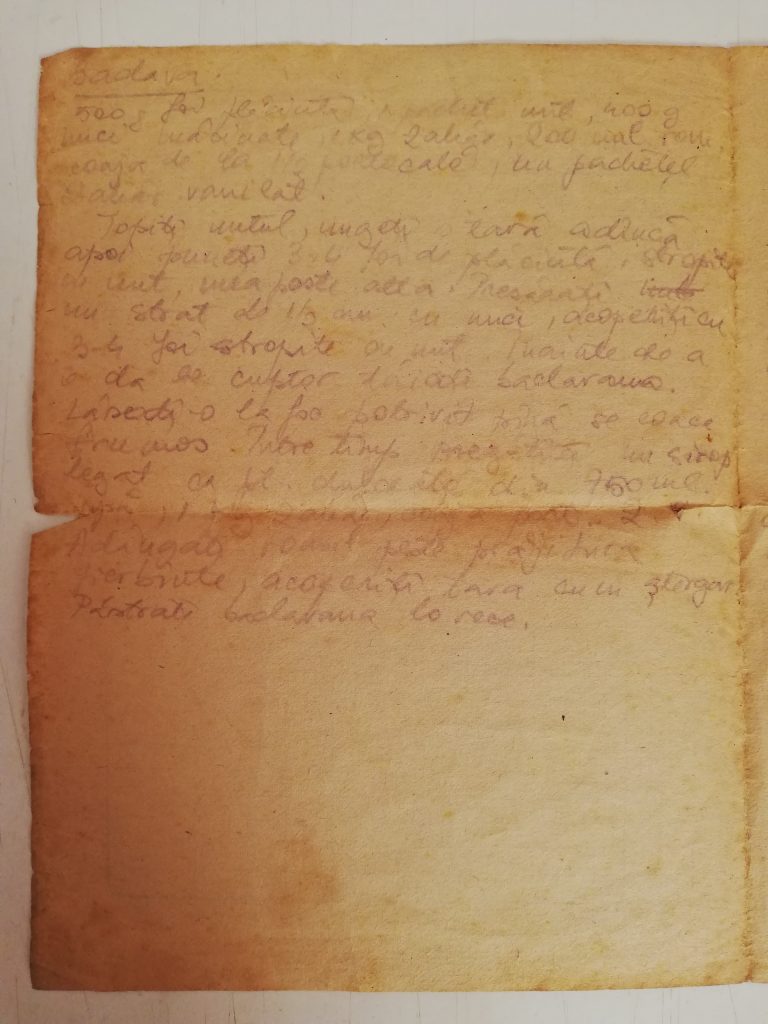 Badava
500 g foi plăcintă, 1 pachet unt, 400 g
nuci măcinate, 1 kg zahăr, 200 ml rom
coaja de la 1/2 portocală, un pachețel
zahăr vanilat.
Topiți untul, ungeți o tavă adîncă
apoi puneți 3-4 foi de plăcintă, stropite
cu unt, una peste alta. Presărați
un strat de 1/2 cm cu nuci, acoperiți cu
3-4 foi stropite cu unt. Înainte de a
o da la cuptor tăiați badavaua.
Lăsați-o la foc potrivit pînă se coace
frumos. Între timp pregătiți un sirop
legat ca pt. dulcețe din 750 ml.
apă, 1 kg zahăr,
Adăugați romul peste prăjitura
fierbinte, acoperiți tava cu un ștergar
Păstrați badavaua la rece.